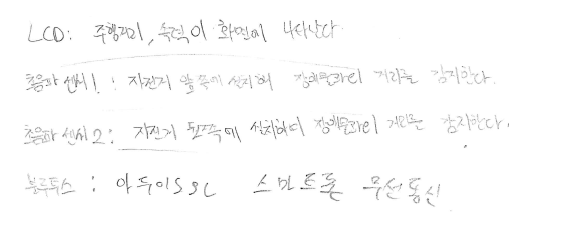 LCD: 주행거리, 속력이 화면에 나타난다
초음파 센서1: 자전거 앞쪽에 설치해 장애물과의 거리를 감지한다.
초음파 센서2: 자전거 뒷쪽에 설치하여 장애물과의 거리를 감지한다.
블루투스: 아두이노 스마트폰 무선통신